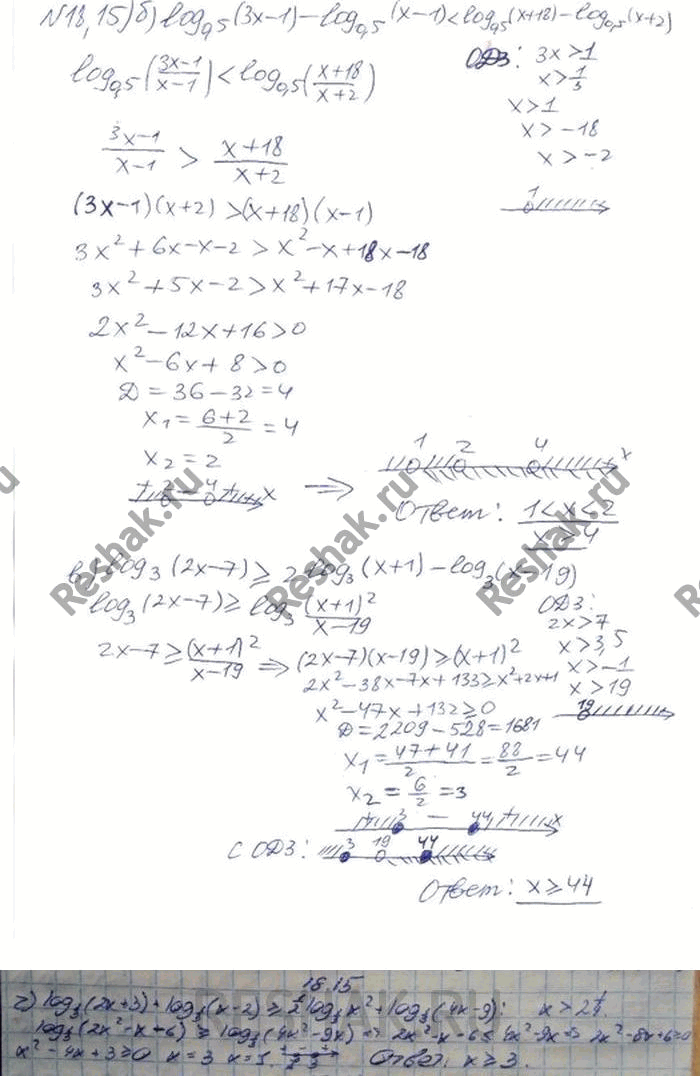 N18,15) б) log₀,₅(3x-1)-log₀,₅(x-1)<log₀,₅(x+18)-log₀,₅(x+2)
log₀,₅(3x-1/x-1)<log₀,₅(x+18/x+2)
ОДЗ: 3x>1
x>1/3
x>1
x>-18
x>-2
1
3x-1/x-1 > x+18/x+2
(3x-1)(x+2)>(x+18)(x-1)
3x²+6x-x-2>x²-x+18x-18
3x²+5x-2>x²+17x-18
2x²-12x+16>0
x²-6x+8>0
Д=36-32=4
x₁=6+2/2=4
x₂=2
+ 2 - 4 + x ⇒ 1 2 4 x
Ответ: 1<x<2
x>4
в) log₃(2x-7)≥2log₃(x+1)-log₃(x-19)
log₃(2x-7)≥log₃(x+1)²/x-19
ОДЗ:
2x>7
x>3,5
x>-1
x>19
19
2x-7≥(x+1)²/x-19 ⇒ (2x-7)(x-19)≥(x+1)²
2x²-38x-7x+133≥x²+2x+1
x²-47x+132≥0
Д=2209-528=1681
x₁=47+41/2=88/2=44
x₂=6/2=3
+ 3 - 44 + x
с ОДЗ: 3 19 44
Ответ: x≥44
18.15
г) log₃(2x+3)+log₃(x-2)≥ log₃x²+log₃(4x-9):
x²-4x+3≥0 x=3 x=1. Ответ: x≥3.
Reshak.ru
Reshak.ru
RESHAK.RU